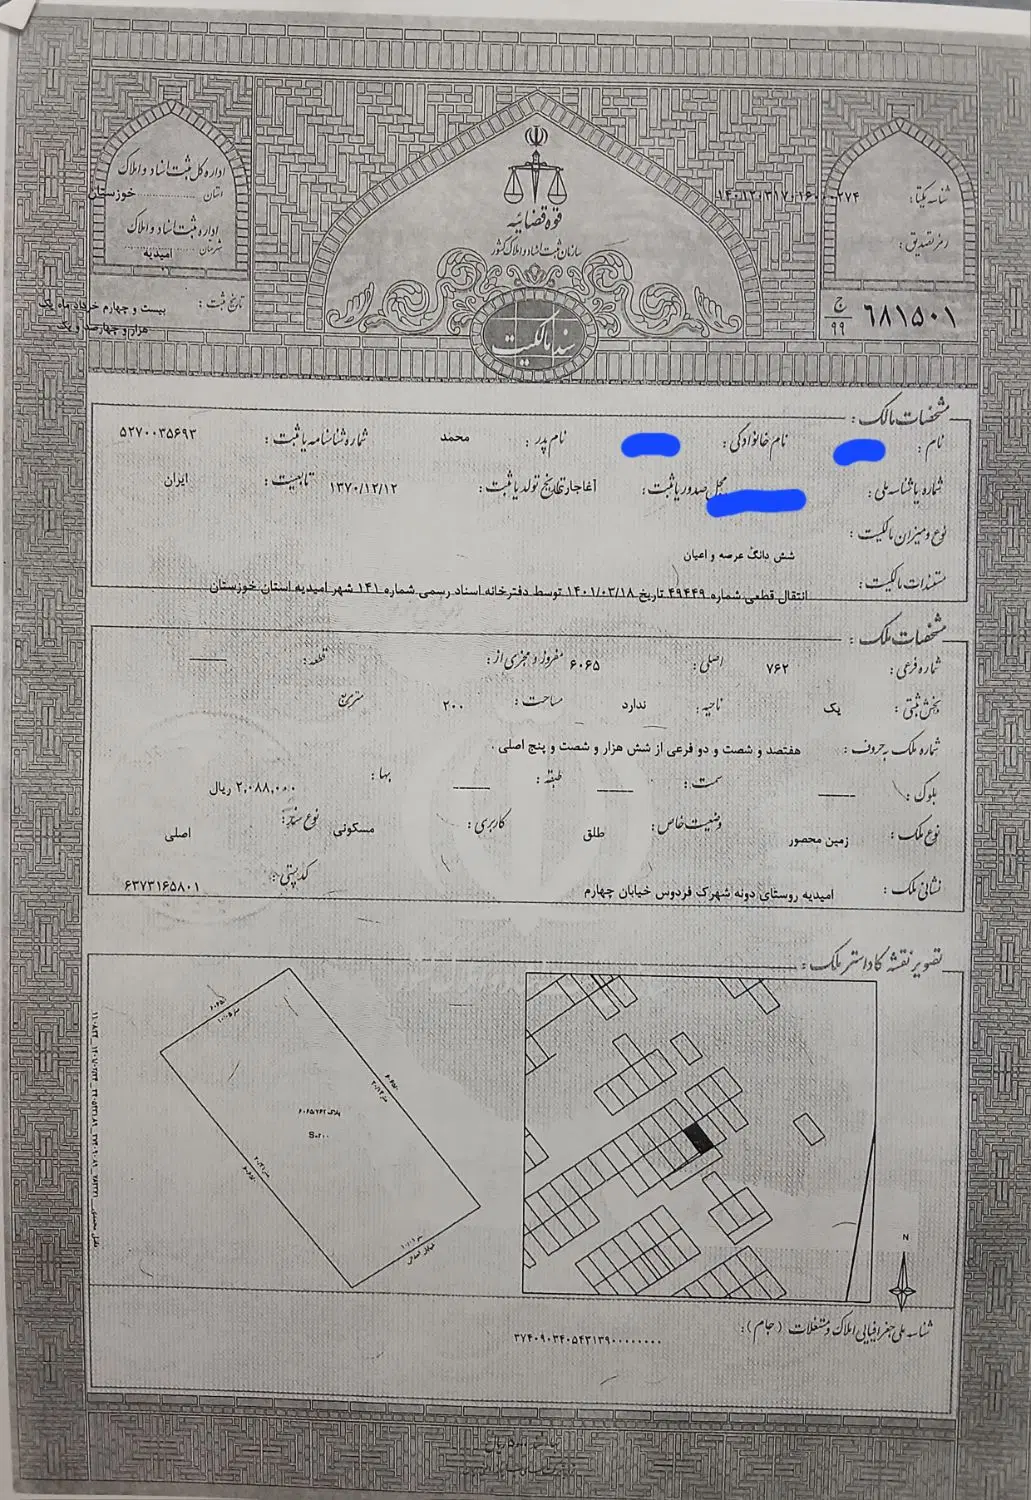 قوه قضائیه
سازمان ثبت اسناد و املاک کشور
سند مالکیت
شناسه یکتا:
رمز تصدیق:
ج
۹۹
۶۸۱۵۰۱
اداره کل ثبت اسناد و املاک
استان خوزستان
اداره ثبت اسناد و املاک
شهرستان امیدیه
تاریخ ثبت: بیست و چهارم خرداد ماه یک
هزار و چهارصد و یک
مشخصات مالک:
نام: نام خانوادگی: نام پدر: محمد شماره شناسنامه یا ثبت: ۵۲۷۰۰۳۵۶۹۳
شماره یا شناسه ملی: محل صدور یا ثبت: آغاجاری تاریخ تولد یا ثبت: ۱۳۷۰/۱۲/۱۲ تابعیت: ایران
نوع و میزان مالکیت:
شش دانگ عرصه و اعیان
مستندات مالکیت:
انتقال قطعی شماره ۴۹۴۴۹ تاریخ ۱۴۰۱/۰۳/۱۸ توسط دفترخانه اسناد رسمی شماره ۱۴۱ شهر امیدیه استان خوزستان
مشخصات ملک:
شماره فرعی: ۷۶۲ اصلی: ۶۰۶۵ مفروز و مجزی از: قطعه:
بخش ثبتی: یک ناحیه: ندارد مساحت: ۲۰۰ متر مربع
شماره ملک به حروف: هفتصد و شصت و دو فرعی از شش هزار و شصت و پنج اصلی .
بلوک: سمت: طبقه: بها: ۲,۰۸۸,۰۰۰ ریال
نوع ملک: زمین محصور وضعیت خاص: طلق کاربری: مسکونی نوع سند: اصلی
نشانی ملک: امیدیه روستای دونه شهرک فردوس خیابان چهارم کد پستی: ۶۳۷۳۱۶۵۸۰۱
تصویر نقشه کاداستر ملک:
پلاک ۶۰۶۵/۷۶۲
S=۲۰۰
N
شناسه ملی جغرافیایی املاک و مستغلات (جام):